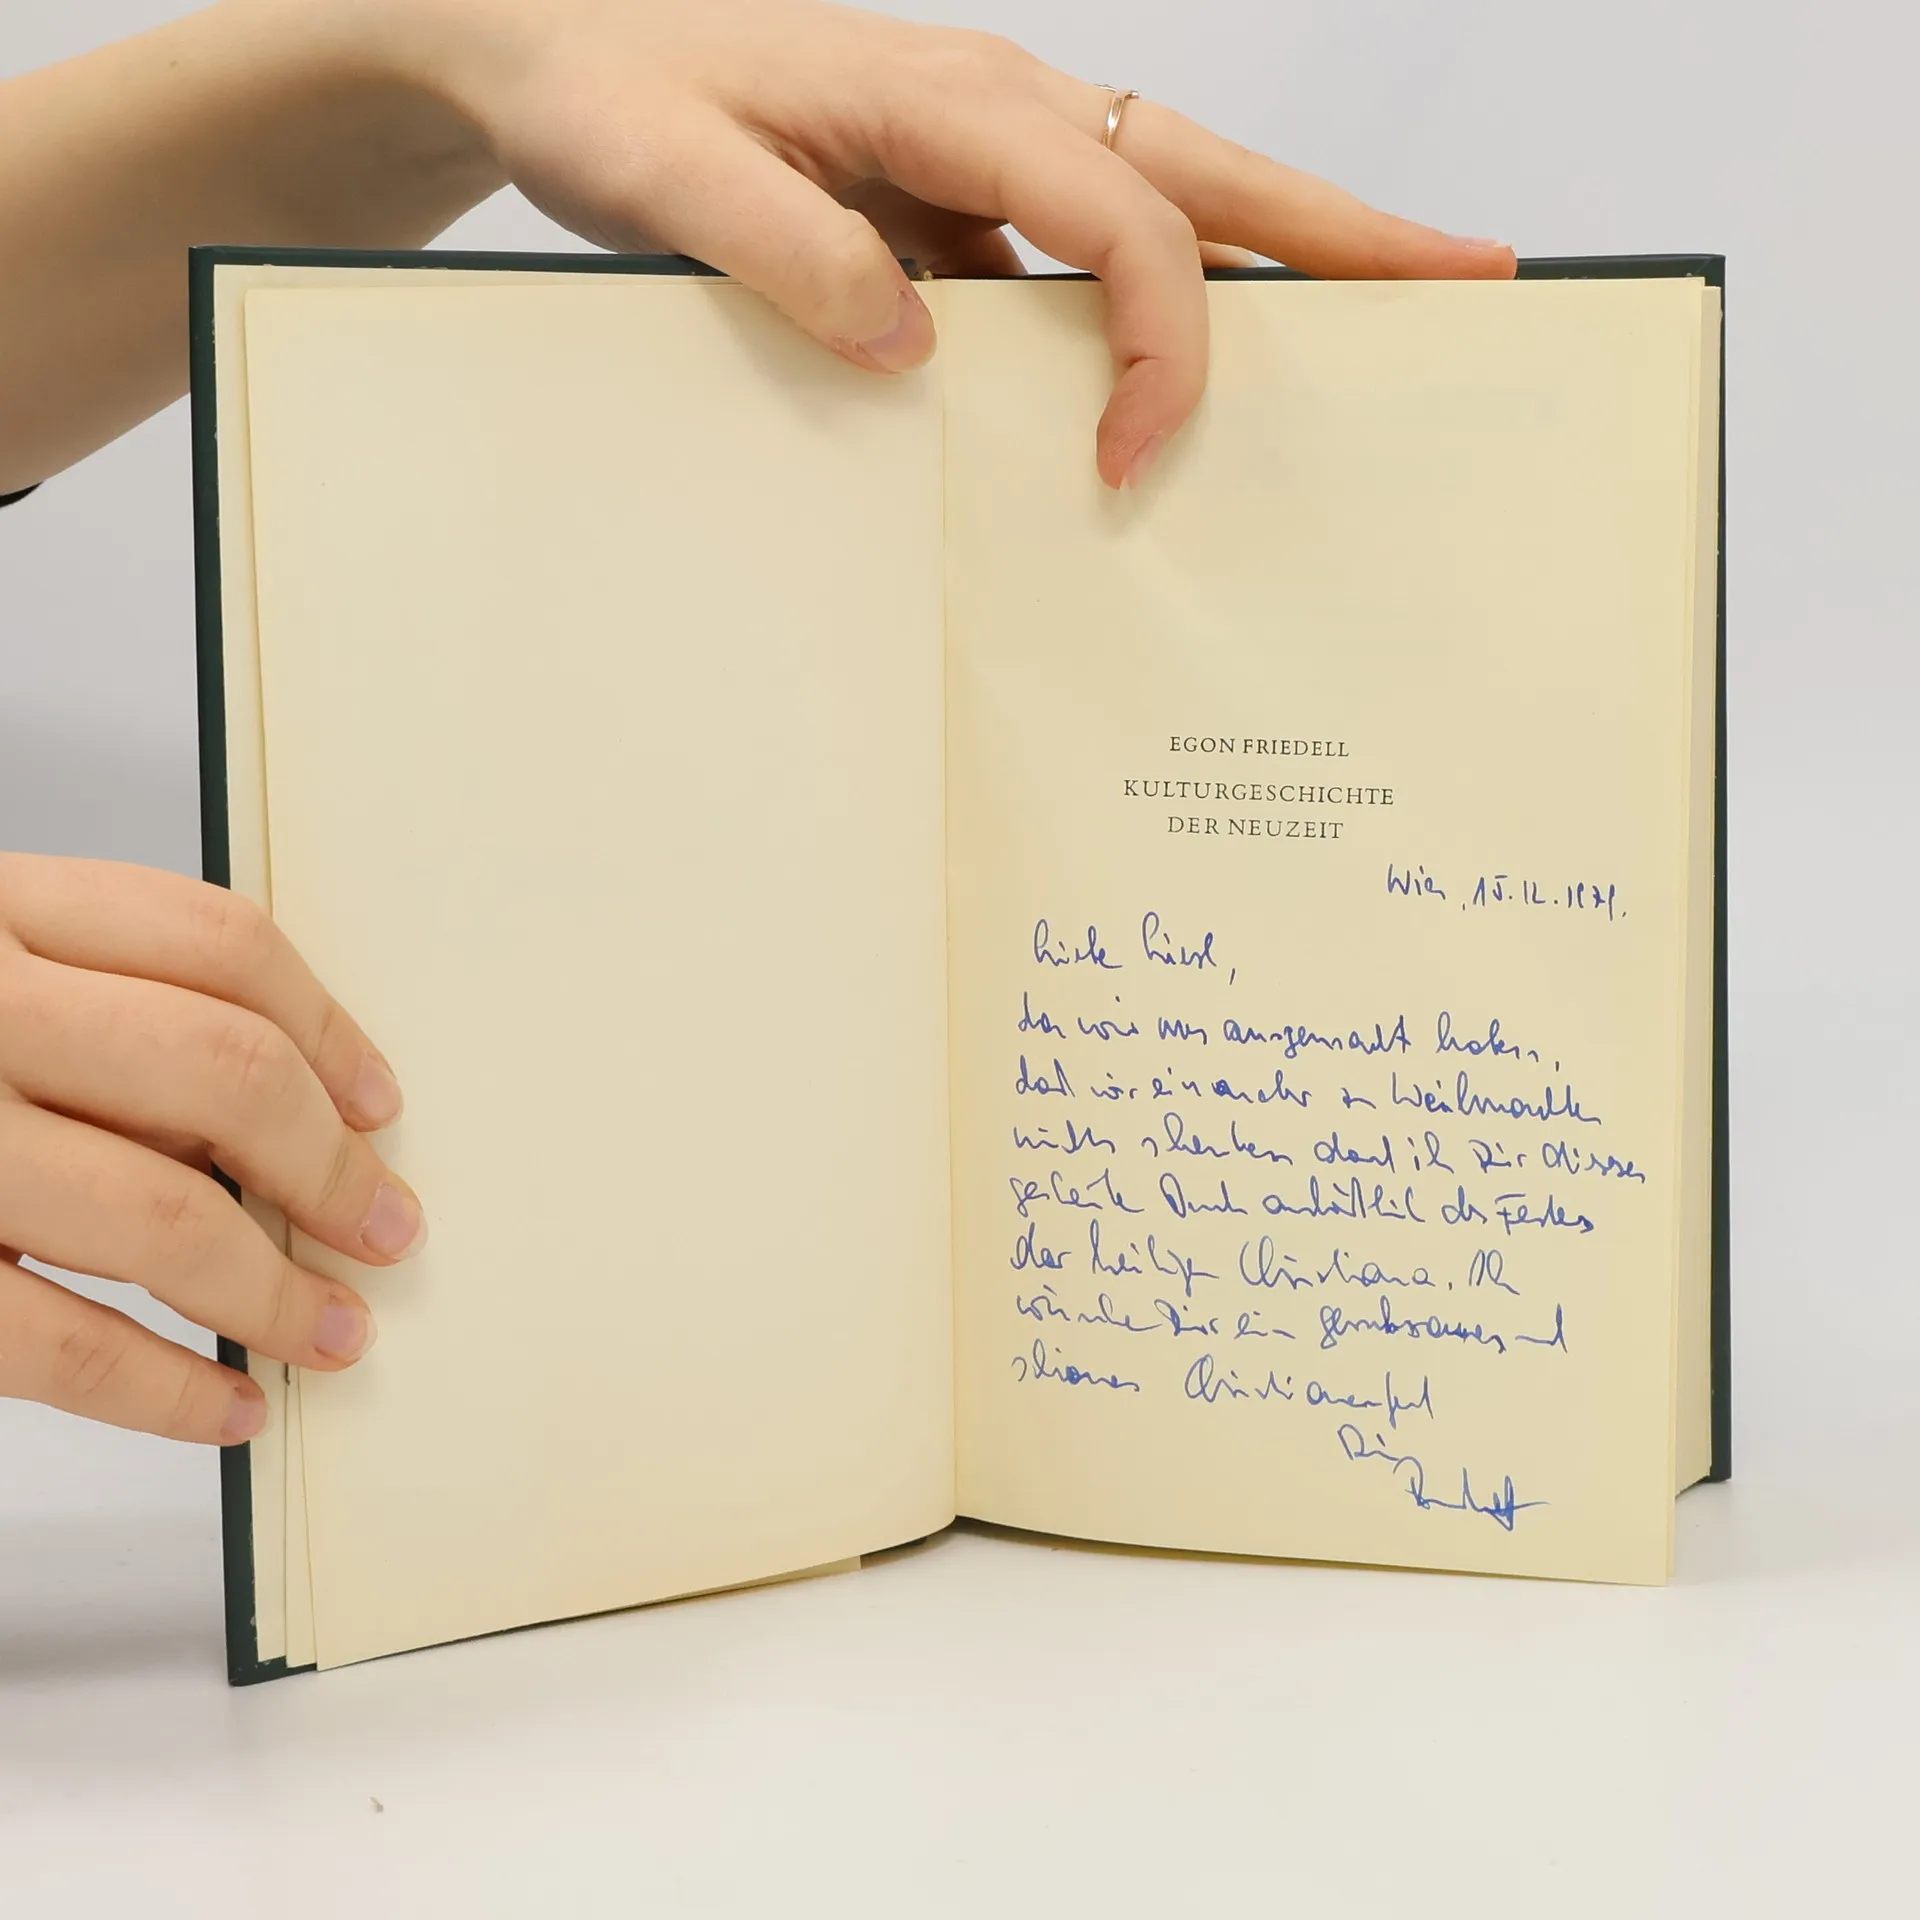 EGON FRIEDELL
KULTURGESCHICHTE
DER NEUZEIT
Wien, 15.12.1979.
Liebe Liesl,
da wir uns ausgemacht haben,
daß wir einander zu Weihnachten
nichts schenken darf ich Dir dieses
gescheite Buch anläßlich des Festes
der heiligen Christiana. Ich
wünsche Dir ein geruhsames und
schönes Christianenfest
Dein